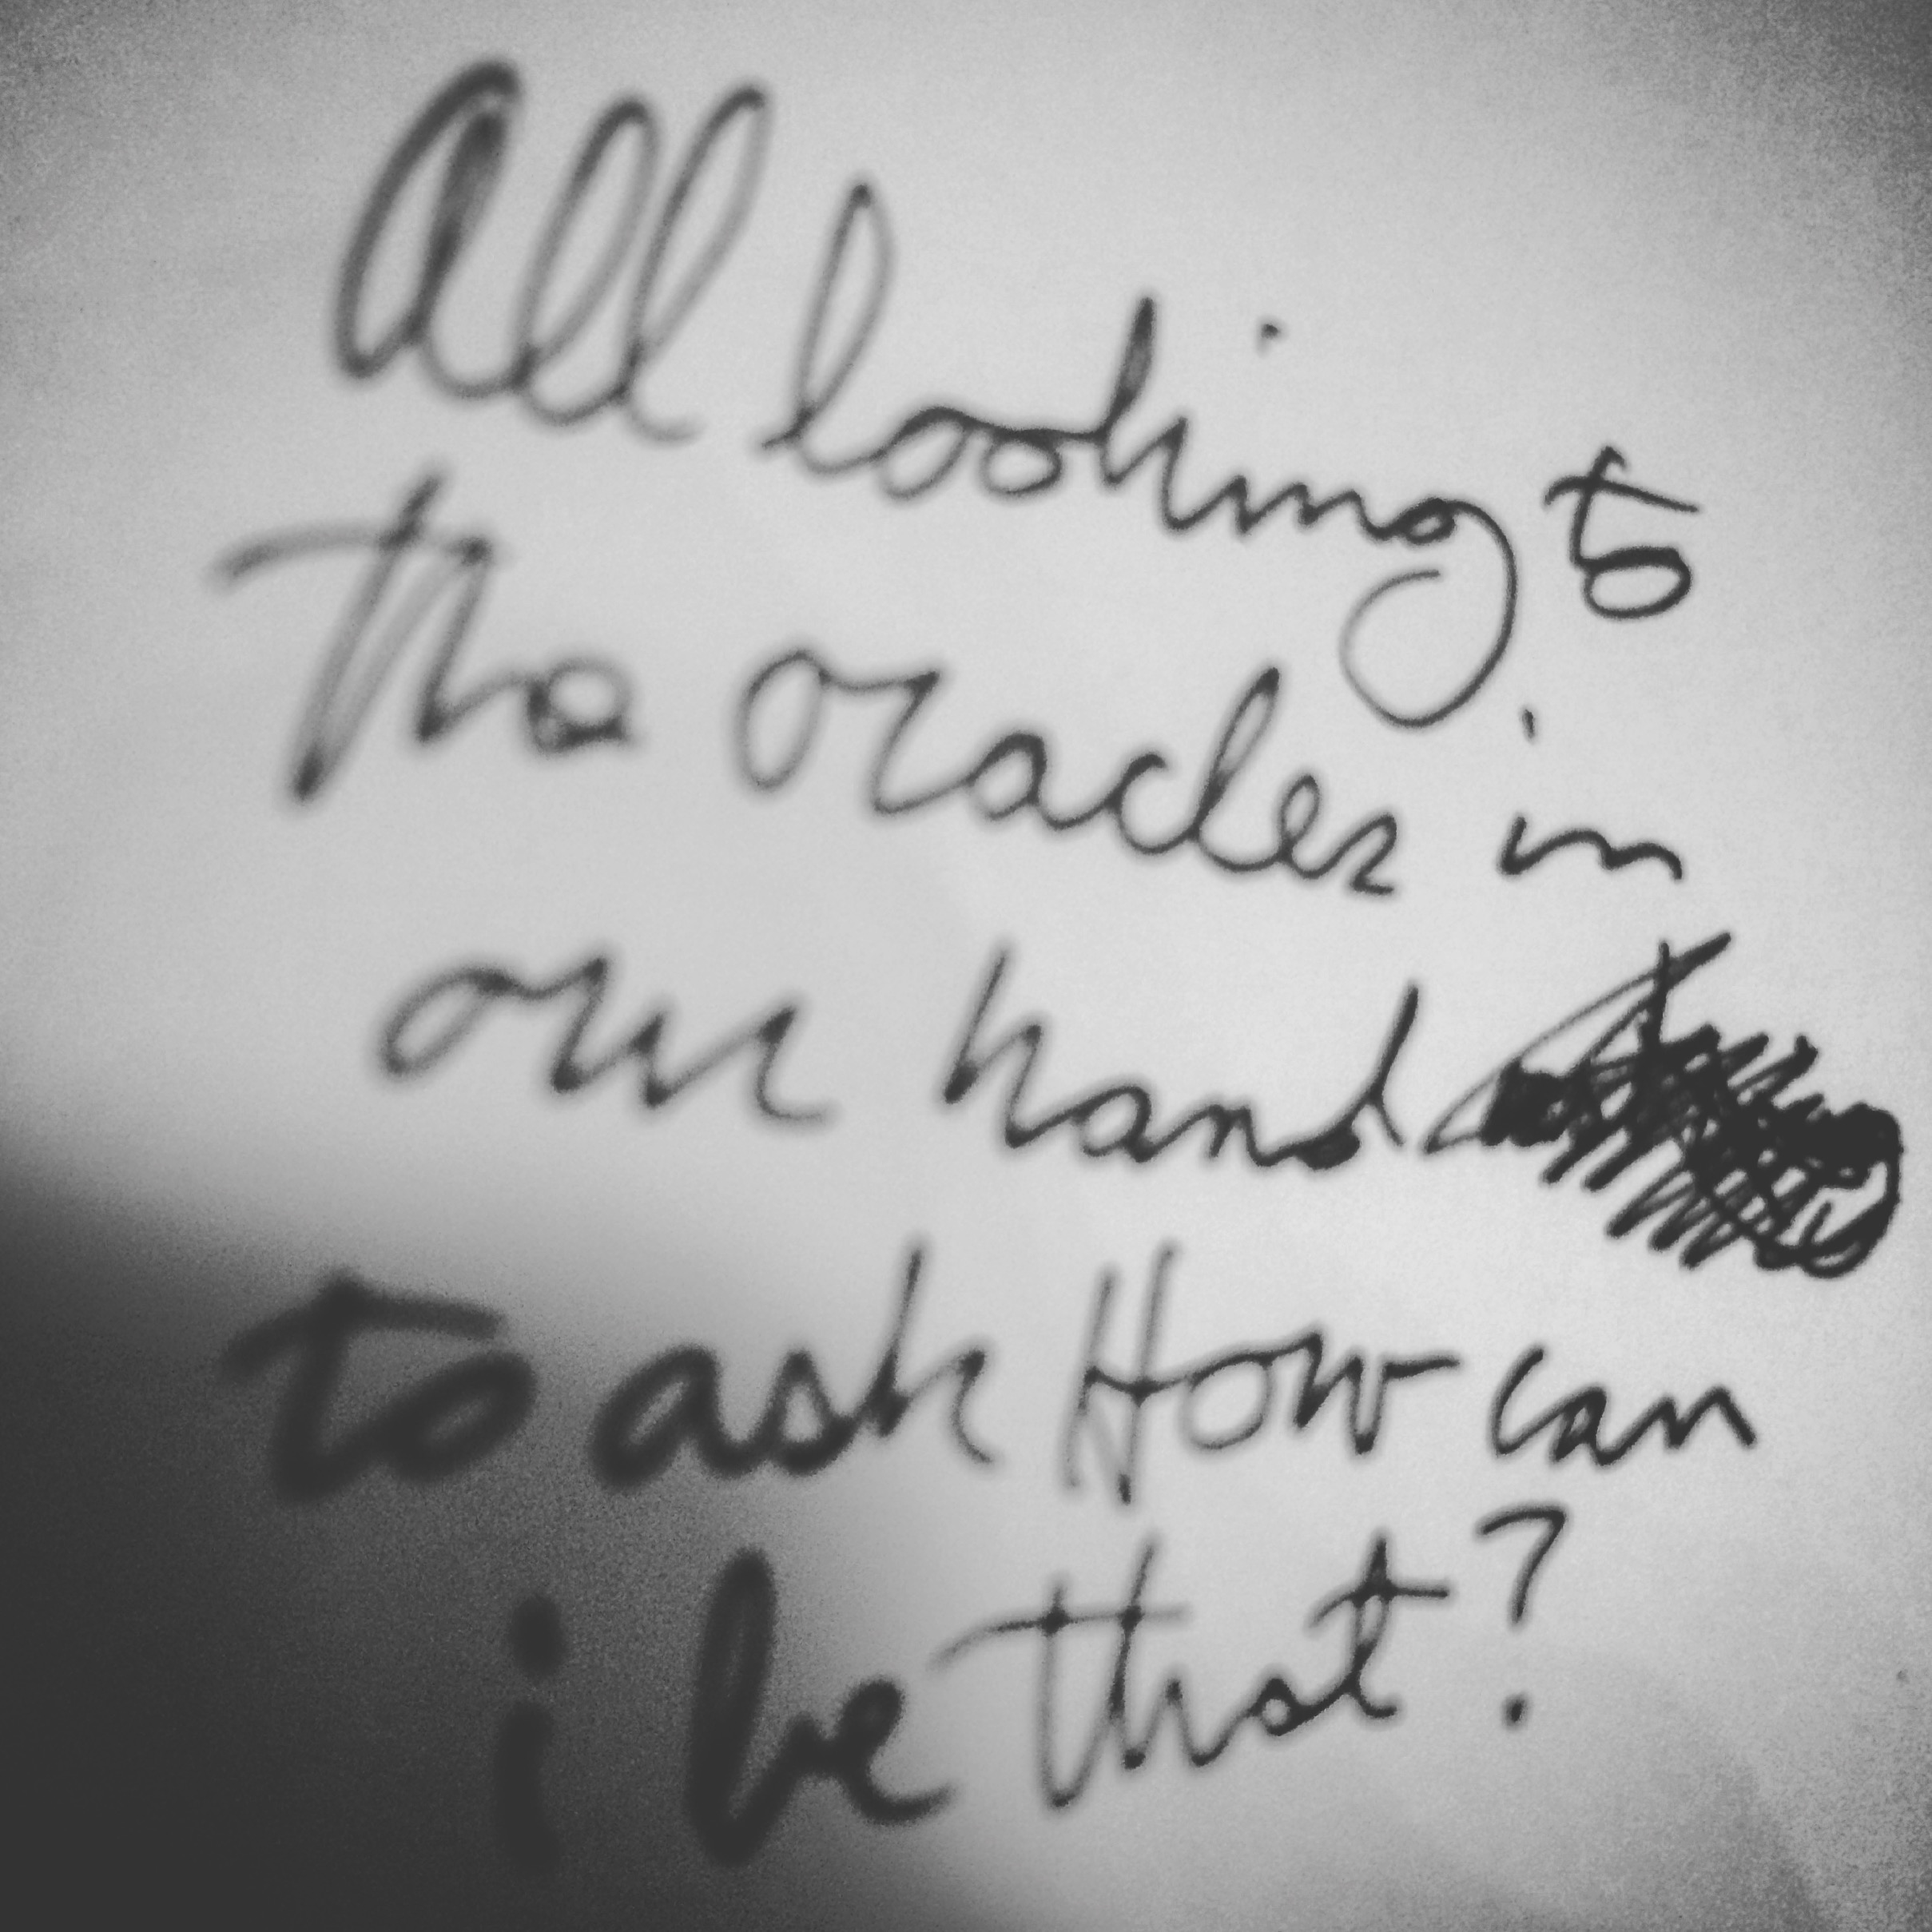 All looking to
The oracles in
our hand
to ask How can
i be that?